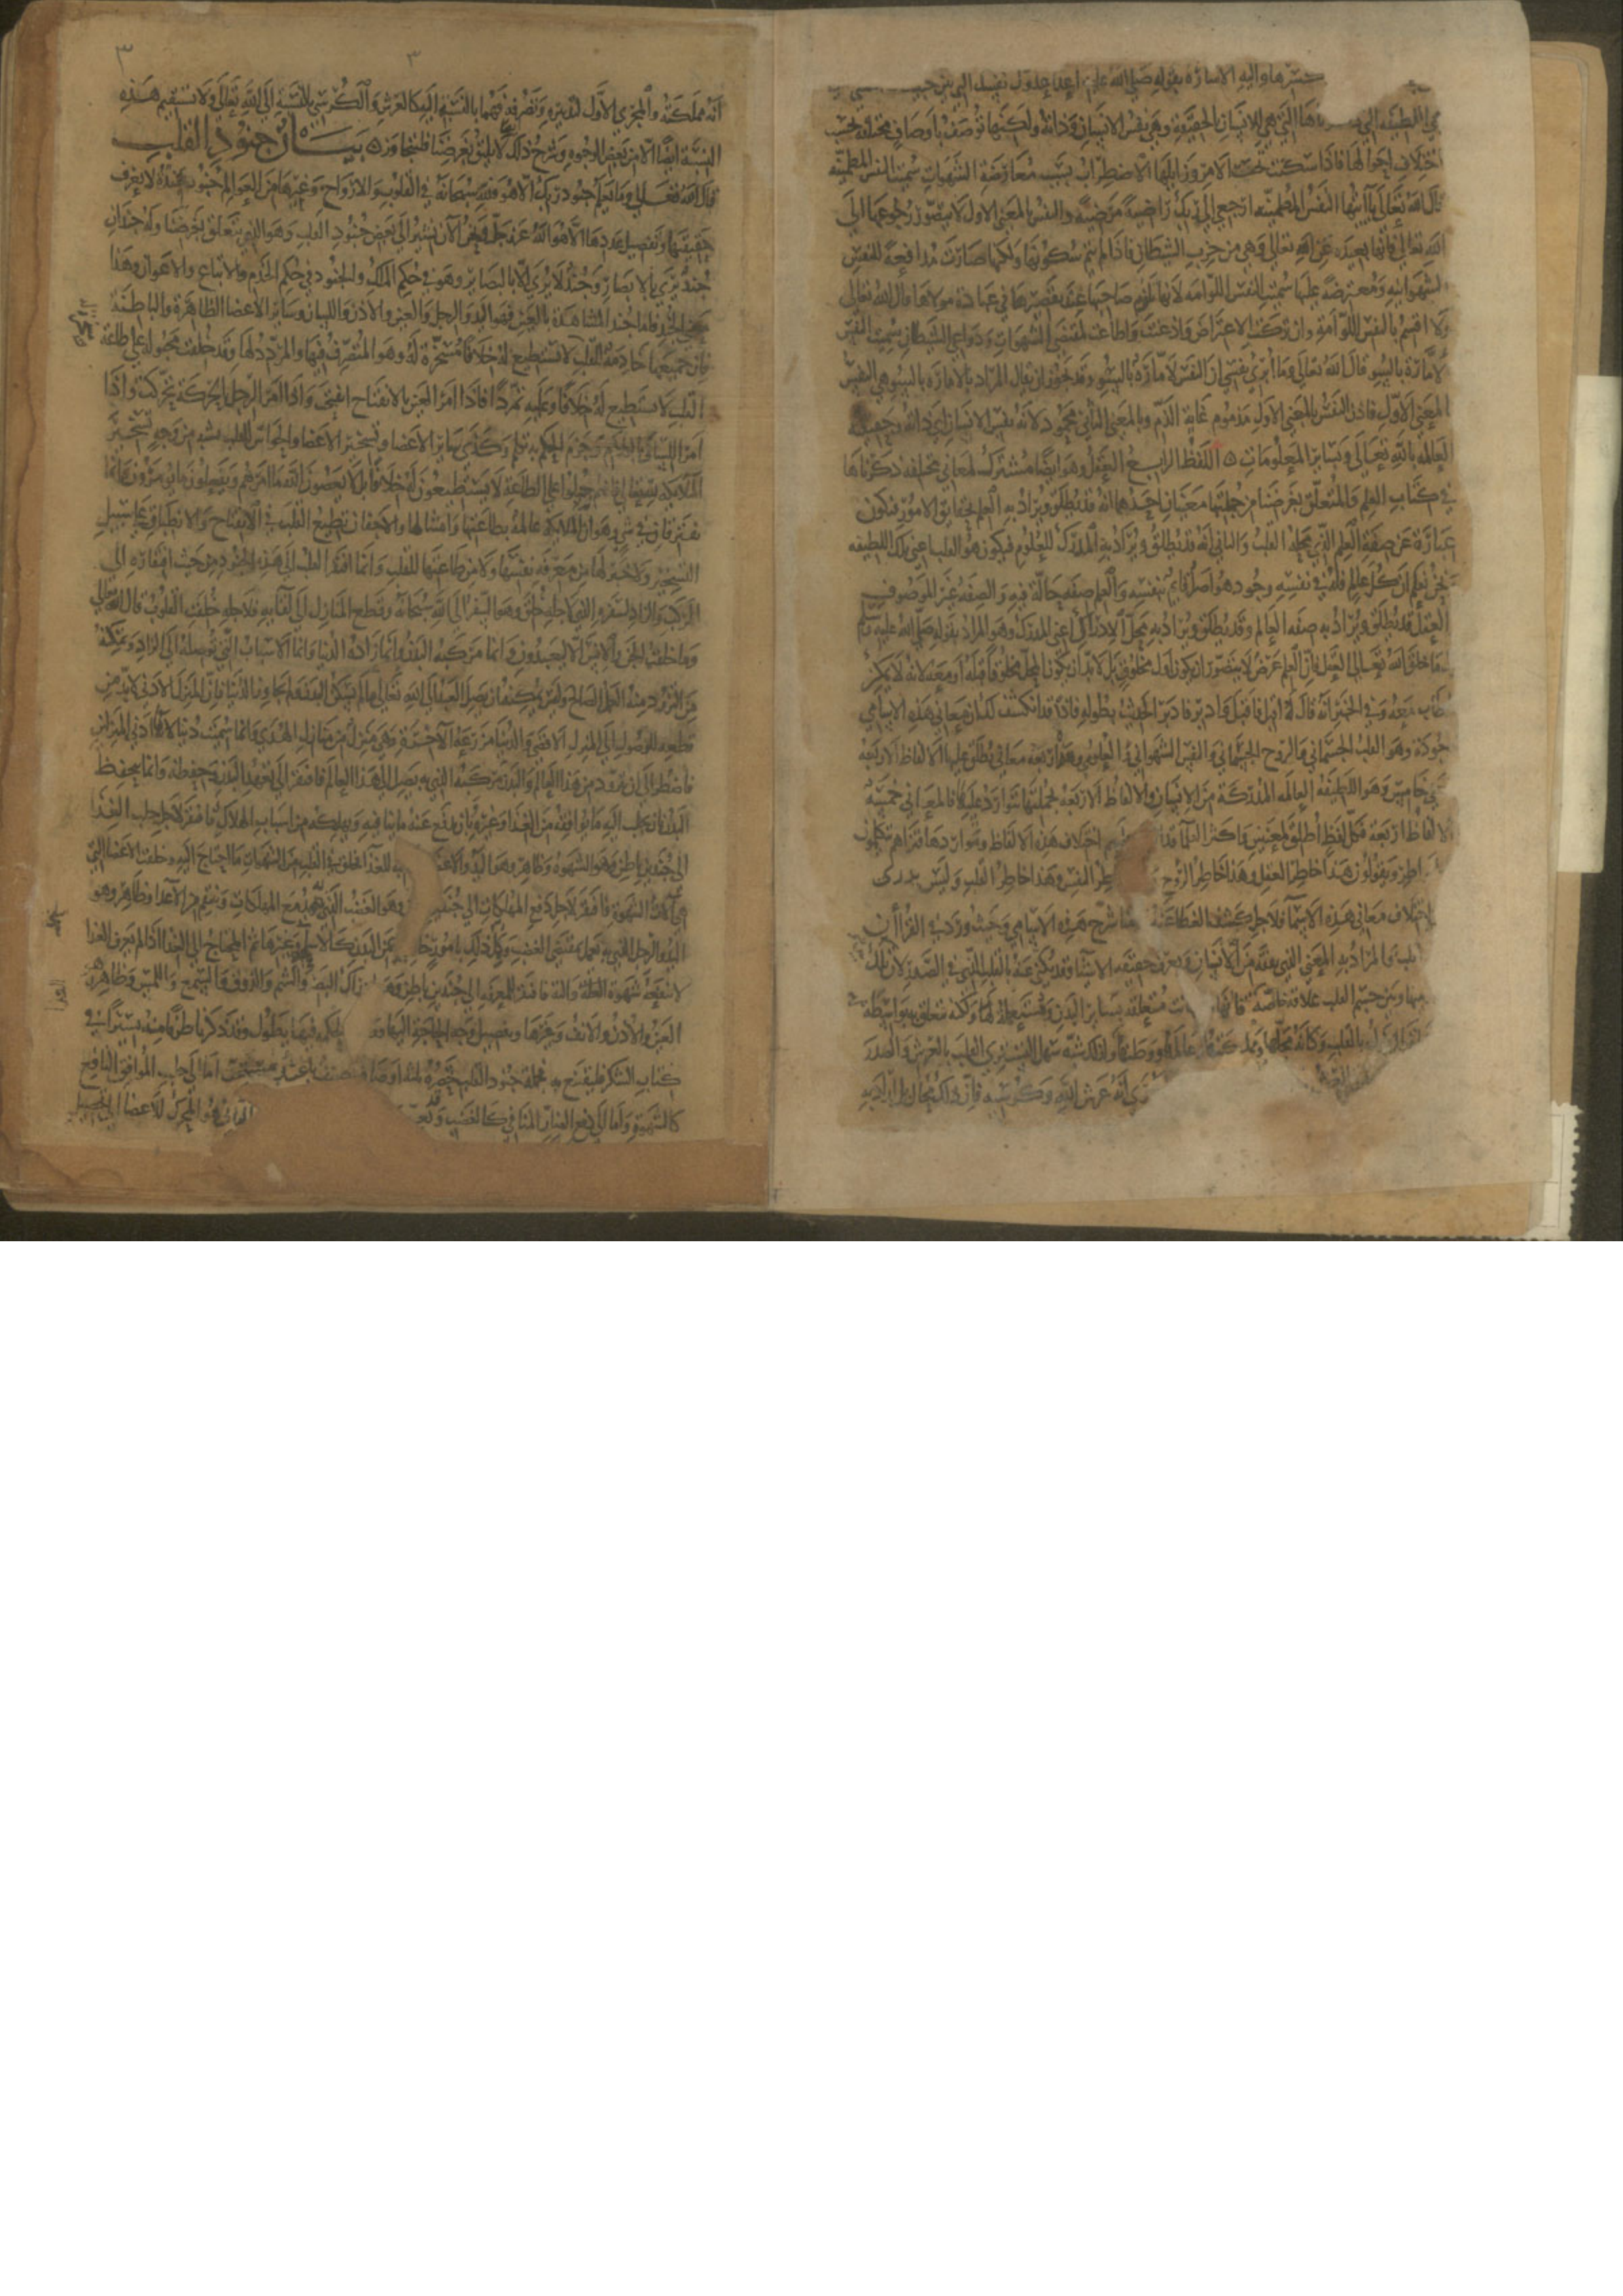 كسرها واليه الاشارة بقوله صلى الله عليه اعدا عدوك نفسك التي بين جنبيك
هي اللطيفه التي ذكرناها التي هي الانسان بالحقيقة وهي نفس الانسان وذاته ولكنها توصف باوصاف مختلفه بحسب
اختلاف احوالها فاذا سكنت تحت الامر وزايلها الاضطراب بسبب معارضة الشهوات سميت النفس المطمئنه
قال الله تعالى يا ايتها النفس المطمئنه ارجعي الى ربك راضية مرضية والنفس بالمعنى الاول لا يتصور رجوعها الى
الله تعالى فانها مبعدة عن الله تعالى وهي من حزب الشيطان فاذا لم يتم سكونها ولكنها صارت مدافعة للنفس
الشهوانيه ومعترضة عليها سميت النفس اللوامه لانها تلوم صاحبها عند تقصيرها في عبادة مولاها قال الله تعالى
ولا اقسم بالنفس اللوامة وان تركت الاعتراض واذعنت واطاعت لمقتضى الشهوات ودواعي الشيطان سميت النفس
الامارة بالسوء قال الله تعالى وما ابرئ نفسي ان النفس لامارة بالسوء وقد يجوز ان يقال المراد بالامارة بالسوء هي النفس
بالمعنى الاول فاذن النفس بالمعنى الاول مذموم غاية الذم وبالمعنى الثاني محمود لانه نفس الانسان اي ذاته وحقيقته
العالمة بالله تعالى وبسائر المعلومات ه اللفظ الرابع العقل وهو ايضا مشترك لمعاني مختلفه ذكرناها
في كتاب العلم والمتعلق بغرضنا من جملتها معنيان احدهما انه قد يطلق ويراد به العلم بحقايق الامور فتكون
عبارة عن صفة العلم الذي محله القلب والثاني انه قد يطلق ويراد به المدرك للعلوم فيكون هو القلب اعني تلك اللطيفه
ونحن نعلم ان كل عالم فله في نفسه وجود هو اصل قايم بنفسه والعلم صفه حالة فيه والصفه غير الموصوف
العقل قد يطلق ويراد به صفه العالم وقد يطلق ويراد به محل الادراك اعني المدرك وهو المراد بقوله صلى الله عليه وسلم
ما خلق الله تعالى العقل فان العلم عرض لا يتصور ان يكون اول مخلوق بل لا بد ان يكون المحل مخلوقا قبله او معه لانه لا يمكن
الخطاب معه وفي الخبر انه قال له اقبل فاقبل وادبر فادبر الحديث بطوله فاذا قد انكشف لك ان معاني هذه الاسامي
موجودة وهو القلب الجسماني والروح الجسماني والنفس الشهواني والعلوم وهذه اربعة معاني يطلق عليها الالفاظ الاربعه
معنى خامس وهو اللطيفه العالمه المدركة من الانسان والالفاظ الاربعة بجملتها تتوارد عليها فالمعاني خمسه
والالفاظ اربعة فكل لفظ اطلق لمعنيين واكثر العلما قد اختلاف هذه الالفاظ وتواردها فتراهم يتكلمون
الخواطر ويقولون هذا خاطر العقل وهذا خاطر الروح خاطر النفس وهذا خاطر القلب وليس يدرى
اختلاف معاني هذه الاسما فلاجل كشف الغطا عنه شرح هذه الاسامي وحيث ورد في القران
القلب فالمراد به المعنى الذي يفقه من الانسان ويعرف حقيقه الاشيا وقد يكنى عنه بالقلب الذي في الصدر لان تلك
بينها وبين جسم القلب علاقه خاصة فانها متعلقه بساير البدن ومستعملة لها ولكنه تتعلق به بواسطة
بالقلب وكانه محلها ومملكتها وعالمها ولذلك شبه سهل التستري القلب بالعرش والصدر
انه عرش الله وكرسيه فان ذلك محال بل اراد به
٣ ٣
انه مملكته والمجرى الاول لتدبيره وتصرفه فهما بالنسبة اليه كالعرش والكرسي بالنسبة الى الله تعالى ولا تستقيم هذه
النسبة ايضا الا من بعض الوجوه وشرح ذلك لا يليق بغرضنا فلنتجاوزه بيان جنود القلب
قال الله تعالى وما يعلم جنود ربك الا هو فلله سبحانه في القلوب والارواح وغيرها من العوالم جنود مجندة لا يعرف
حقيقتها وتفصيل عددها الا هو الله عز وجل فنحن الان نشير الى بعض جنود القلب وهو الذي يتعلق بغرضنا وله جندان
جند يرى بالابصار وجند لا يرى الا بالبصاير وهو في حكم الملك والجنود في حكم الخدم والاتباع والاعوان وهذا
معنى الجند فاما جند المشاهدة بالعين فهو اليد والرجل والعين والاذن واللسان وساير الاعضا الظاهرة والباطنة
فان جميعها خادمة للقلب لا تستطيع له خلافا مسخرة له وهو المتصرف فيها والمردد لها وقد خلقت مجبوله على طاعة
القلب لا تستطيع له خلافا وعليه تمردا فاذا امر العين بالانفتاح انفتحت واذا امر الرجل بالحركة تحركت واذا
امر اللسان بالكلام وجزم الحكم به تكلم وكذى ساير الاعضا وتسخير الاعضا والحواس للقلب يشبه من وجه تسخير
الملائكة لله تعالى فانهم جبلوا على الطاعة لا يستطيعون له خلافا بل لا يعصون الله ما امرهم ويفعلون ما يؤمرون وانما
يفترقان في شيء وهو ان الملايكه عالمة بطاعتها وامتثالها والاجفان تطيع القلب في الانفتاح والانطباق على سبيل
التسخير ولا خبر لها من معرفة نفسها ولا من طاعتها للقلب وانما افتقر القلب الى هذه الجنود من حيث افتقاره الى
المركب والزاد لسفره الذي لاجله خلق وهو السفر الى الله سبحانه وقطع المنازل الى لقايه فلاجله خلقت القلوب قال الله تعالى
وما خلقت الجن والانس الا ليعبدون وانما مركبه البدن وانما زاده الدنيا وانما الاسباب التي توصله الى الزاد وتمكنه
من التزود منه العمل الصالح وليس يمكنه ان يصل العبد الى الله تعالى ما لم يسكن البدن ولم يجاوز الدنيا فان المنزل الادنى لا بد من
قطعه للوصول الى المنزل الاقصى والدنيا مزرعة الاخرة وهي منزل من منازل الهدى وانما سميت دنيا لانها ادنى المنزلتين
فاضطر الى ان يتزود من هذا العالم والبدن مركبه الذي به يصل الى هذا العالم فافتقر الى تعهد البدن وحفظه وانما يحفظ
البدن بان يجلب اليه ما يوافقه من الغذا وغيره وبان يدفع عنه ما ينافيه ويهلكه من اسباب الهلاك فافتقر لاجل جلب الغذا
الى جندين باطن وهو الشهوة وظاهر وهو اليد والاعضا للغذا فخلق في القلب من الشهوات ما احتاج اليه وخلقت الاعضا التي
هي الات الشهوة فافتقر لاجل دفع المهلكات الى جندين وهو الغضب الذي به يدفع المهلكات وينتقم من الاعدا وظاهر وهو
اليد والرجل الذي به يعمل بمقتضى الغضب وكل ذلك بامور خارجة من البدن كالاسلحة وغيرها ثم المحتاج الى الغذا اذا لم يعرف الغذا
لا تنفعه شهوة الغذا والفه فافتقر للمعرفه الى جندين باطن وهو ادراك البصر والشم والذوق والسمع واللمس وظاهر وهو
العين والاذن والانف وغيرها وتفصيل وجه الحاجة اليها ووجه الحكمه فيها يطول وقد ذكرنا طرفا منه يسيرا في
كتاب الشكر فليقتنع به فجملة جنود القلب يحصرها ثلثة اوصاف صنف باعث مستحث اما الى جلب الموافق النافع
كالشهوة واما الى دفع الضار المنافي كالغضب وقد الثاني هو المحرك للاعضا الى تحصيل